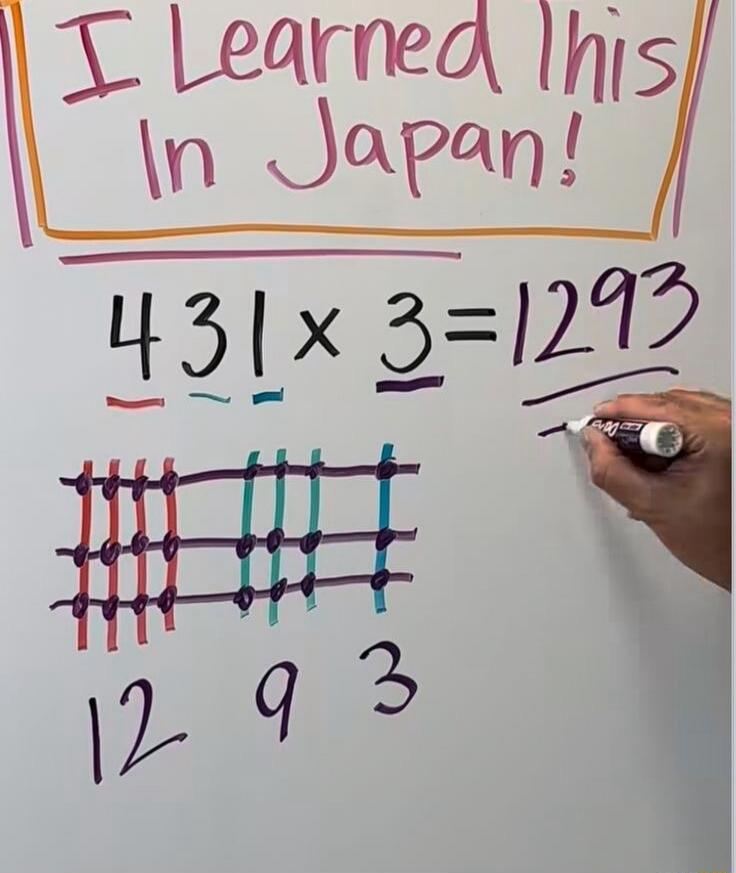 I Learned This
In Japan!
431 x 3 = 1293
12 9 3